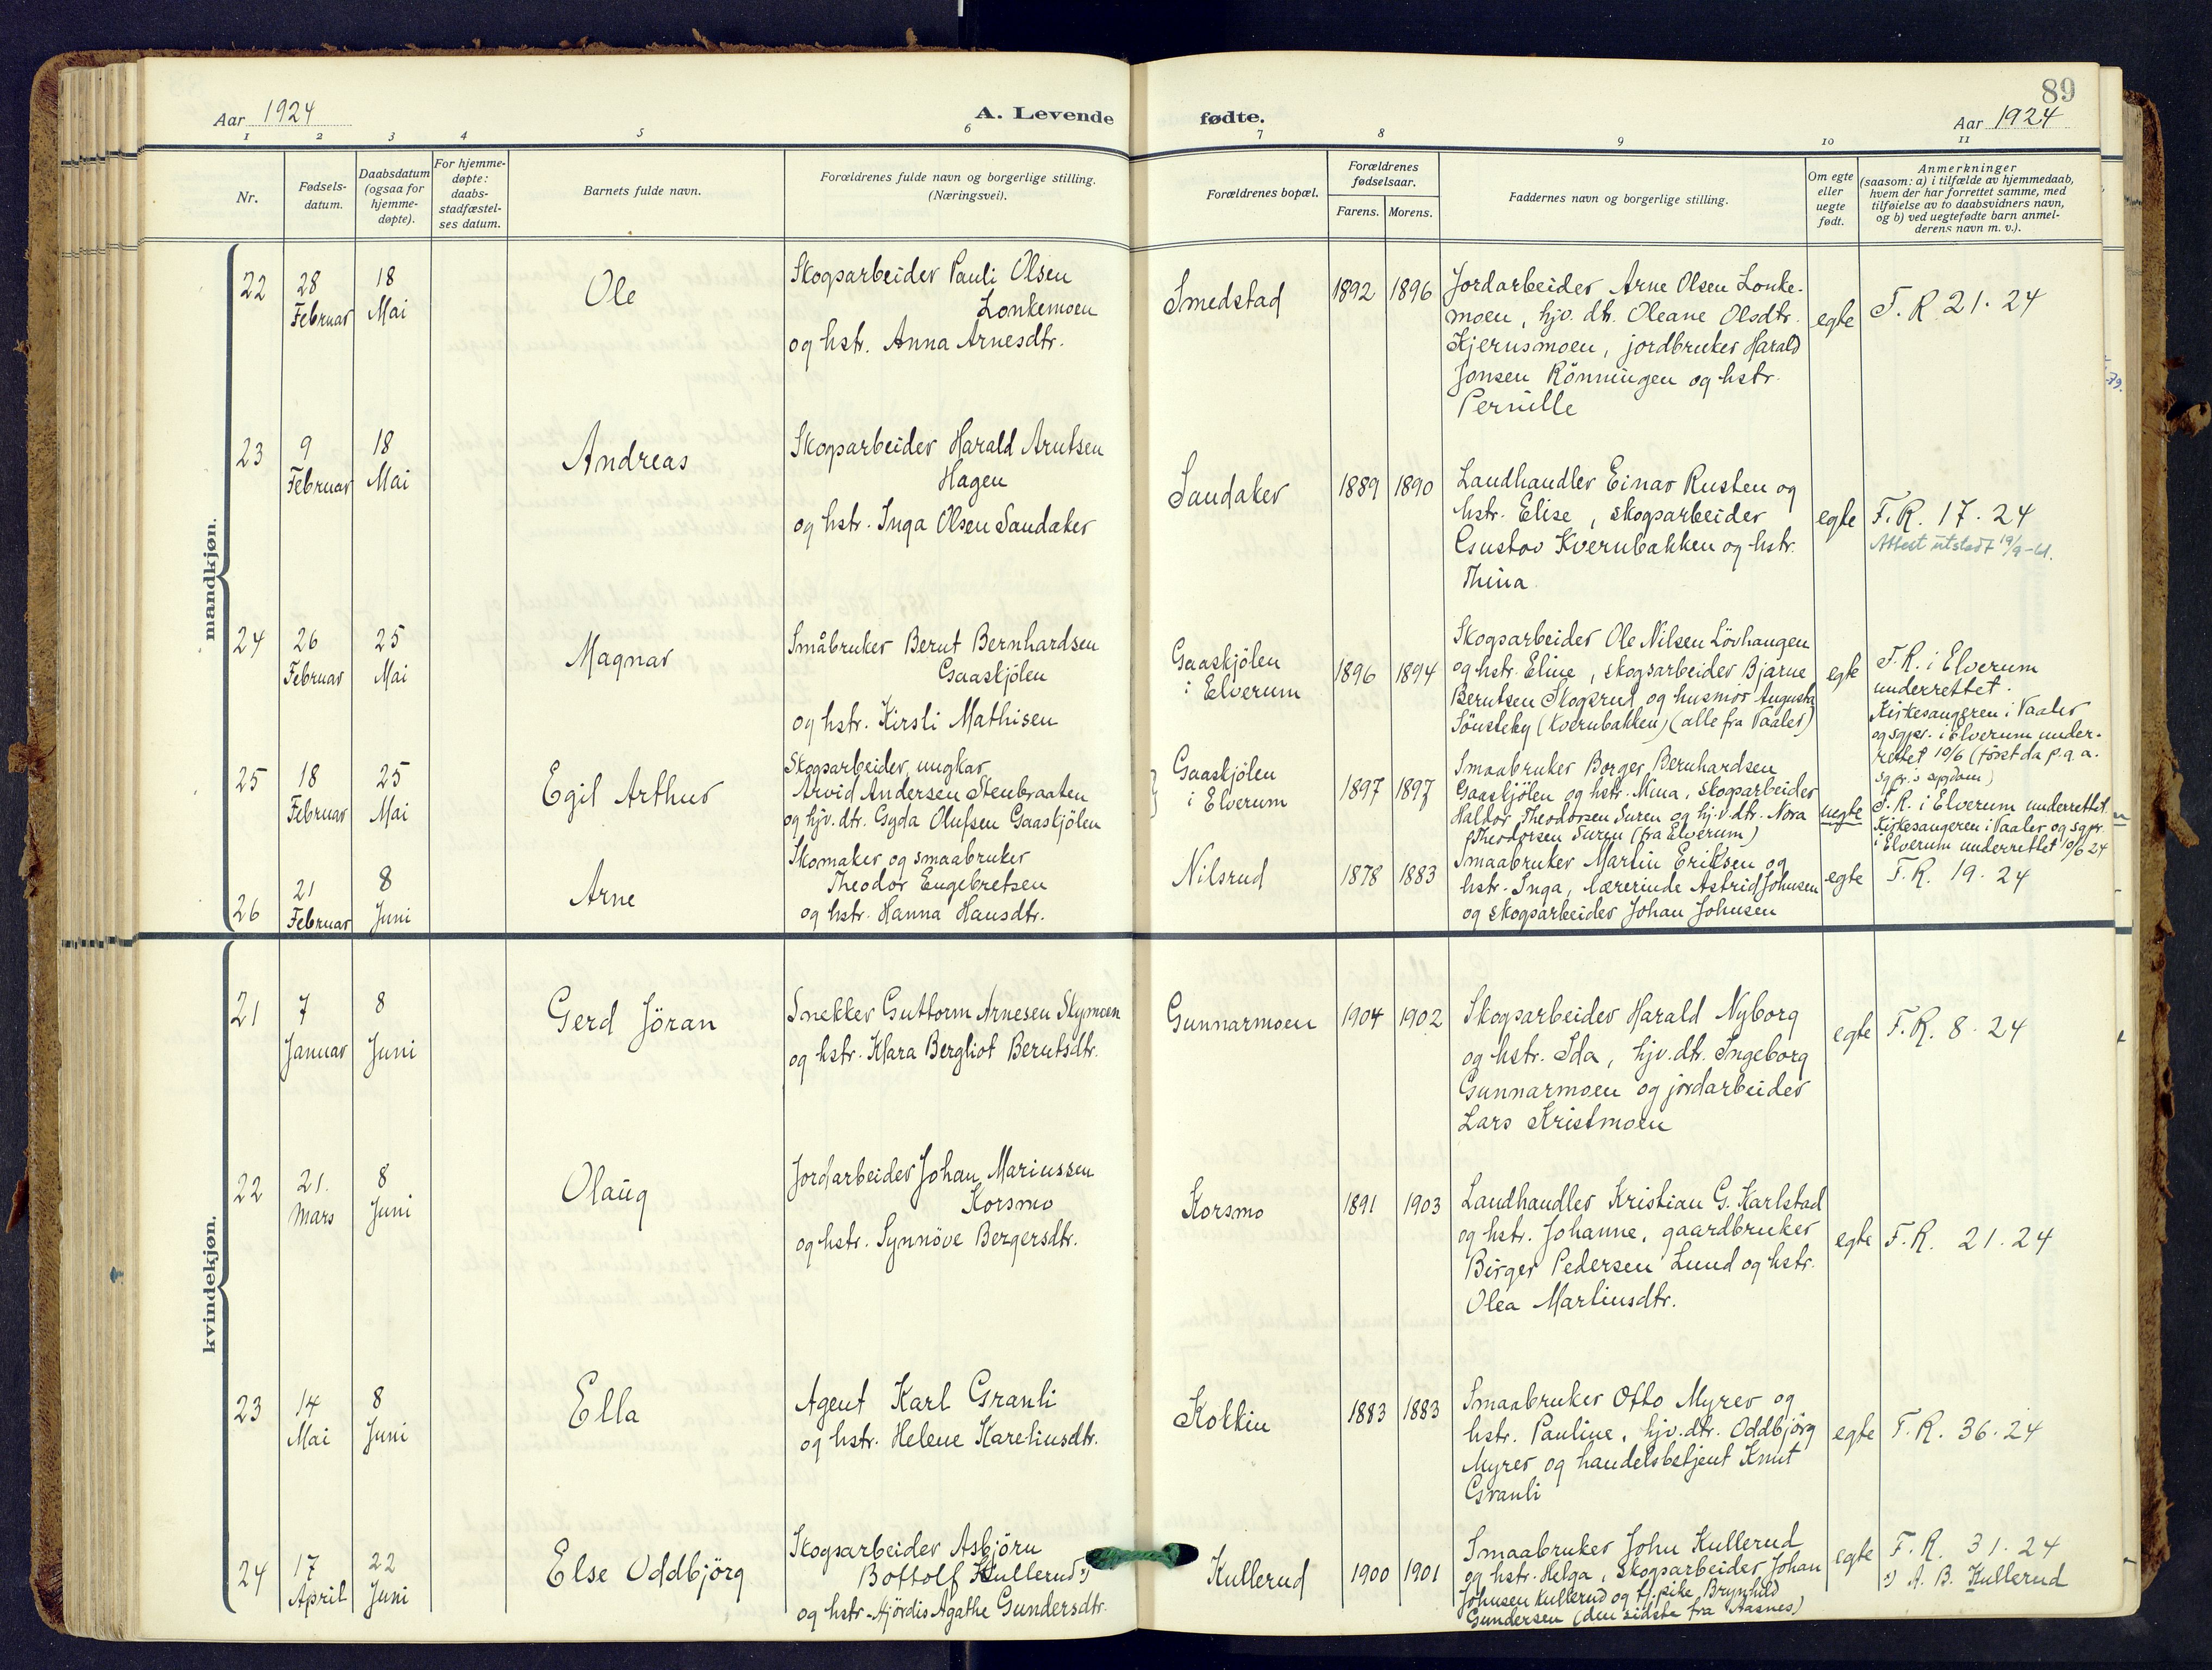 89
Aar 1924
A. Levende fødte.
Aar 1924
1 2 3 4 5 6 7 8 9 10 11
Nr.
Fødsels-
datum.
Daabsdatum
(ogsaa for
hjemme-
døpte).
For hjemme-
døpte:
daabs-
stadfæstel-
ses datum.
Barnets fulde navn.
Forældrenes fulde navn og borgerlige stilling.
(Næringsvei).
Forældrenes bopæl.
Forældrenes
fødselsaar.
Farens. Morens.
Faddernes navn og borgerlige stilling.
Om egte
eller
uegte
født.
Anmerkninger
(saasom: a) i tilfælde av hjemmedaab,
hvem der har forrettet samme, med
tilføielse av to daabsvidners navn,
og b) ved uegtefødte barn anmel-
derens navn m. v.).
mandkjøn.
22
28
Februar
18
Mai
Ole
Skogsarbeider Pauli Olsen
Lonkemoen
og hstr. Anna Arnesdtr.
Smedstad
1892 1896
Jordarbeider Arne Olsen Lonke-
moen, hjv. dtr. Oleane Olsdtr.
Kjernsmoen, jordbruker Harald
Jonsen Rönningen og hstr.
Pernille
egte
F. R. 21. 24
23
9
Februar
18
Mai
Andreas
Skogsarbeider Harald Arntsen
Hagen
og hstr. Inga Olsen Sandaker
Sandaker
1889 1890
Landhandler Einar Rusten og
hstr. Elise, skogsarbeider
Gustav Kvernbakken og hstr.
Thina.
egte
F. R. 17. 24
Attest utstedt 19/9-61.
24
26
Februar
25
Mai
Magnar
Småbruker Bernt Bernhardsen
Gaaskjölen
og hstr. Kirsti Mathisen
Gaaskjölen
i Elverum
1896 1894
Skogsarbeider Ole Nilsen Lövhaugen
og hstr. Eline, skogsarbeider Bjarne
Berntsen Skogsrud og husmor Augusta
Sönsteby (Kvernbakken) (alle fra Vaaler)
egte
F. R. i Elverum
underrettet.
Kirkesangeren i Vaaler
og sgpr. i Elverum under-
rettet 10/6 (først da p. g. a.
sgpr.s sygdom)
25
18
Februar
25
Mai
Egil Arthur
Skogsarbeider, ungkar
Arvid Andersen Stenbraaten
og hjv. dtr. Gyda Olufsen Gaaskjölen
Gaaskjölen
i Elverum
1897 1897
Smaabruker Borger Bernhardsen
Gaaskjölen og hstr. Mina, skogsarbeider
Haldor Theodorsen Suren og hj.v.dtr. Nora
Theodorsen Suren (fra Elverum)
uegte
F. R. i Elverum underrettet.
Kirkesangeren i Vaaler og sgpr.
i Elverum underrettet 10/6 24
26
21
Februar
8
Juni
Arne
Skomaker og smaabruker
Theodor Engebretsen
og hstr. Hanna Hansdtr.
Nilsrud
1878 1883
Smaabruker Martin Eriksen og
hstr. Inga, lærerinde Astrid Johnsen
og skogsarbeider Johan Johnsen
egte
F. R. 19. 24
kvindekjøn.
21
7
Januar
8
Juni
Gerd Jöran
Snekker Guttorm Arnesen Skymoen
og hstr. Klara Bergliot Berntsdtr.
Gunnarmoen
1904 1902
Skogsarbeider Harald Nyborg
og hstr. Ida, hjv. dtr. Ingeborg
Gunnarmoen og jordarbeider
Lars Kristmoen
egte
F. R. 8. 24
22
21.
Mars
8
Juni
Olaug
Jordarbeider Johan Mariussen
Korsmo
og hstr. Synnöve Bergersdtr.
Korsmo
1891 1903
Landhandler Kristian G. Karlstad
og hstr. Johanne, gaardbruker
Birger Pedersen Lund og hstr.
Olea Martinsdtr.
egte
F. R. 21. 24
23
14
Mai
8
Juni
Ella
Agent Karl Granli
og hstr. Helene Kareliusdtr.
Kolkin
1883 1883
Smaabruker Otto Myrer og
hstr. Pauline, hjv. dtr. Oddbjörg
Myrer og handelsbetjent Knut
Granli
egte
F. R. 36. 24
24
17
April
22
Juni
Else Oddbjörg
Skogsarbeider Asbjörn
Bottolf Kullerud
og hstr. Hjördis Agathe Gundersdtr.
Kullerud
1900 1901
Smaabruker John Kullerud
og hstr. Helga, skogsarbeider Johan
Johnsen Kullerud og tj. pike Brynhild
Gundersen (den sidste fra Aasnes)
egte
F. R. 31. 24
A. B. Kullerud